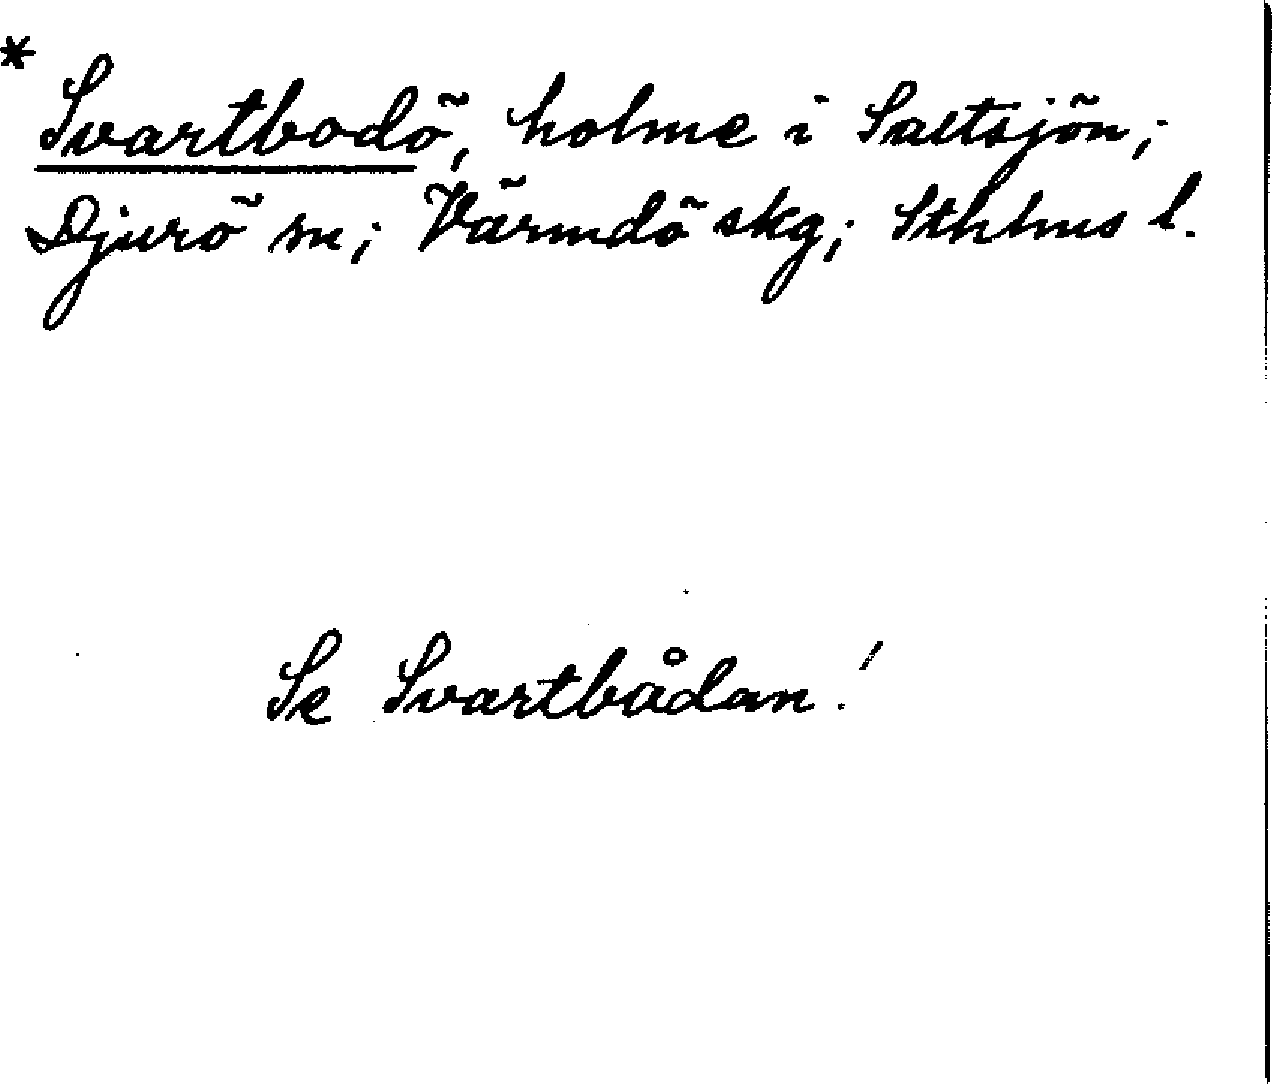 * Svartbodö, holme i Saltsjön;
Djurö sn; Värmdö skg; Sthlms l.
Se Svartbådan!